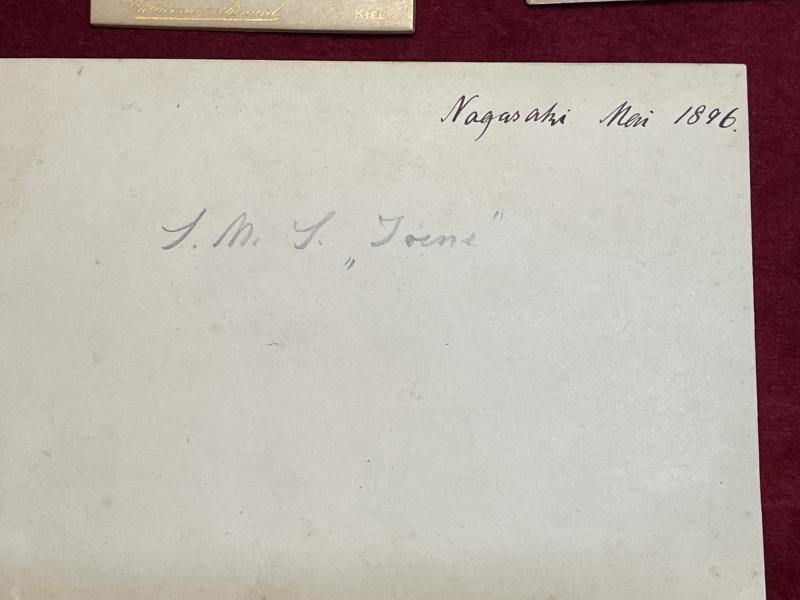 KIEL
Nagasaki Mai 1896.
S. M. S. „Irene"